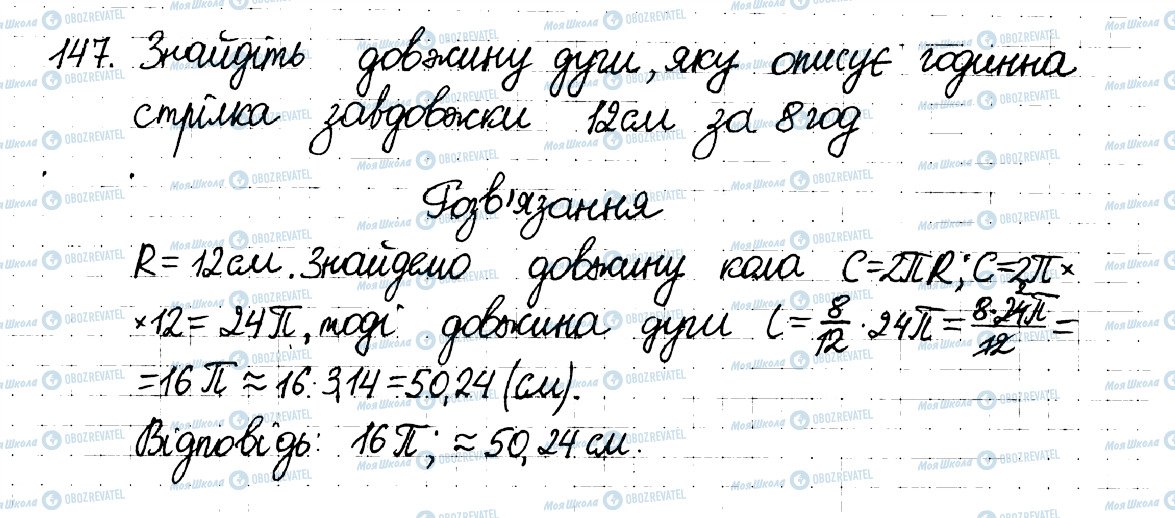 147. Знайдіть довжину дуги, яку описує годинна
стрілка завдовжки 12см за 8 год
Розв'язання
R = 12 см. Знайдемо довжину кола C=2πR; C=2π×
×12= 24π, тоді довжина дуги l = 8/12 · 24π = 8·24π/12 =
=16π ≈ 16·3,14=50,24 (см).
Відповідь: 16π; ≈50,24 см.